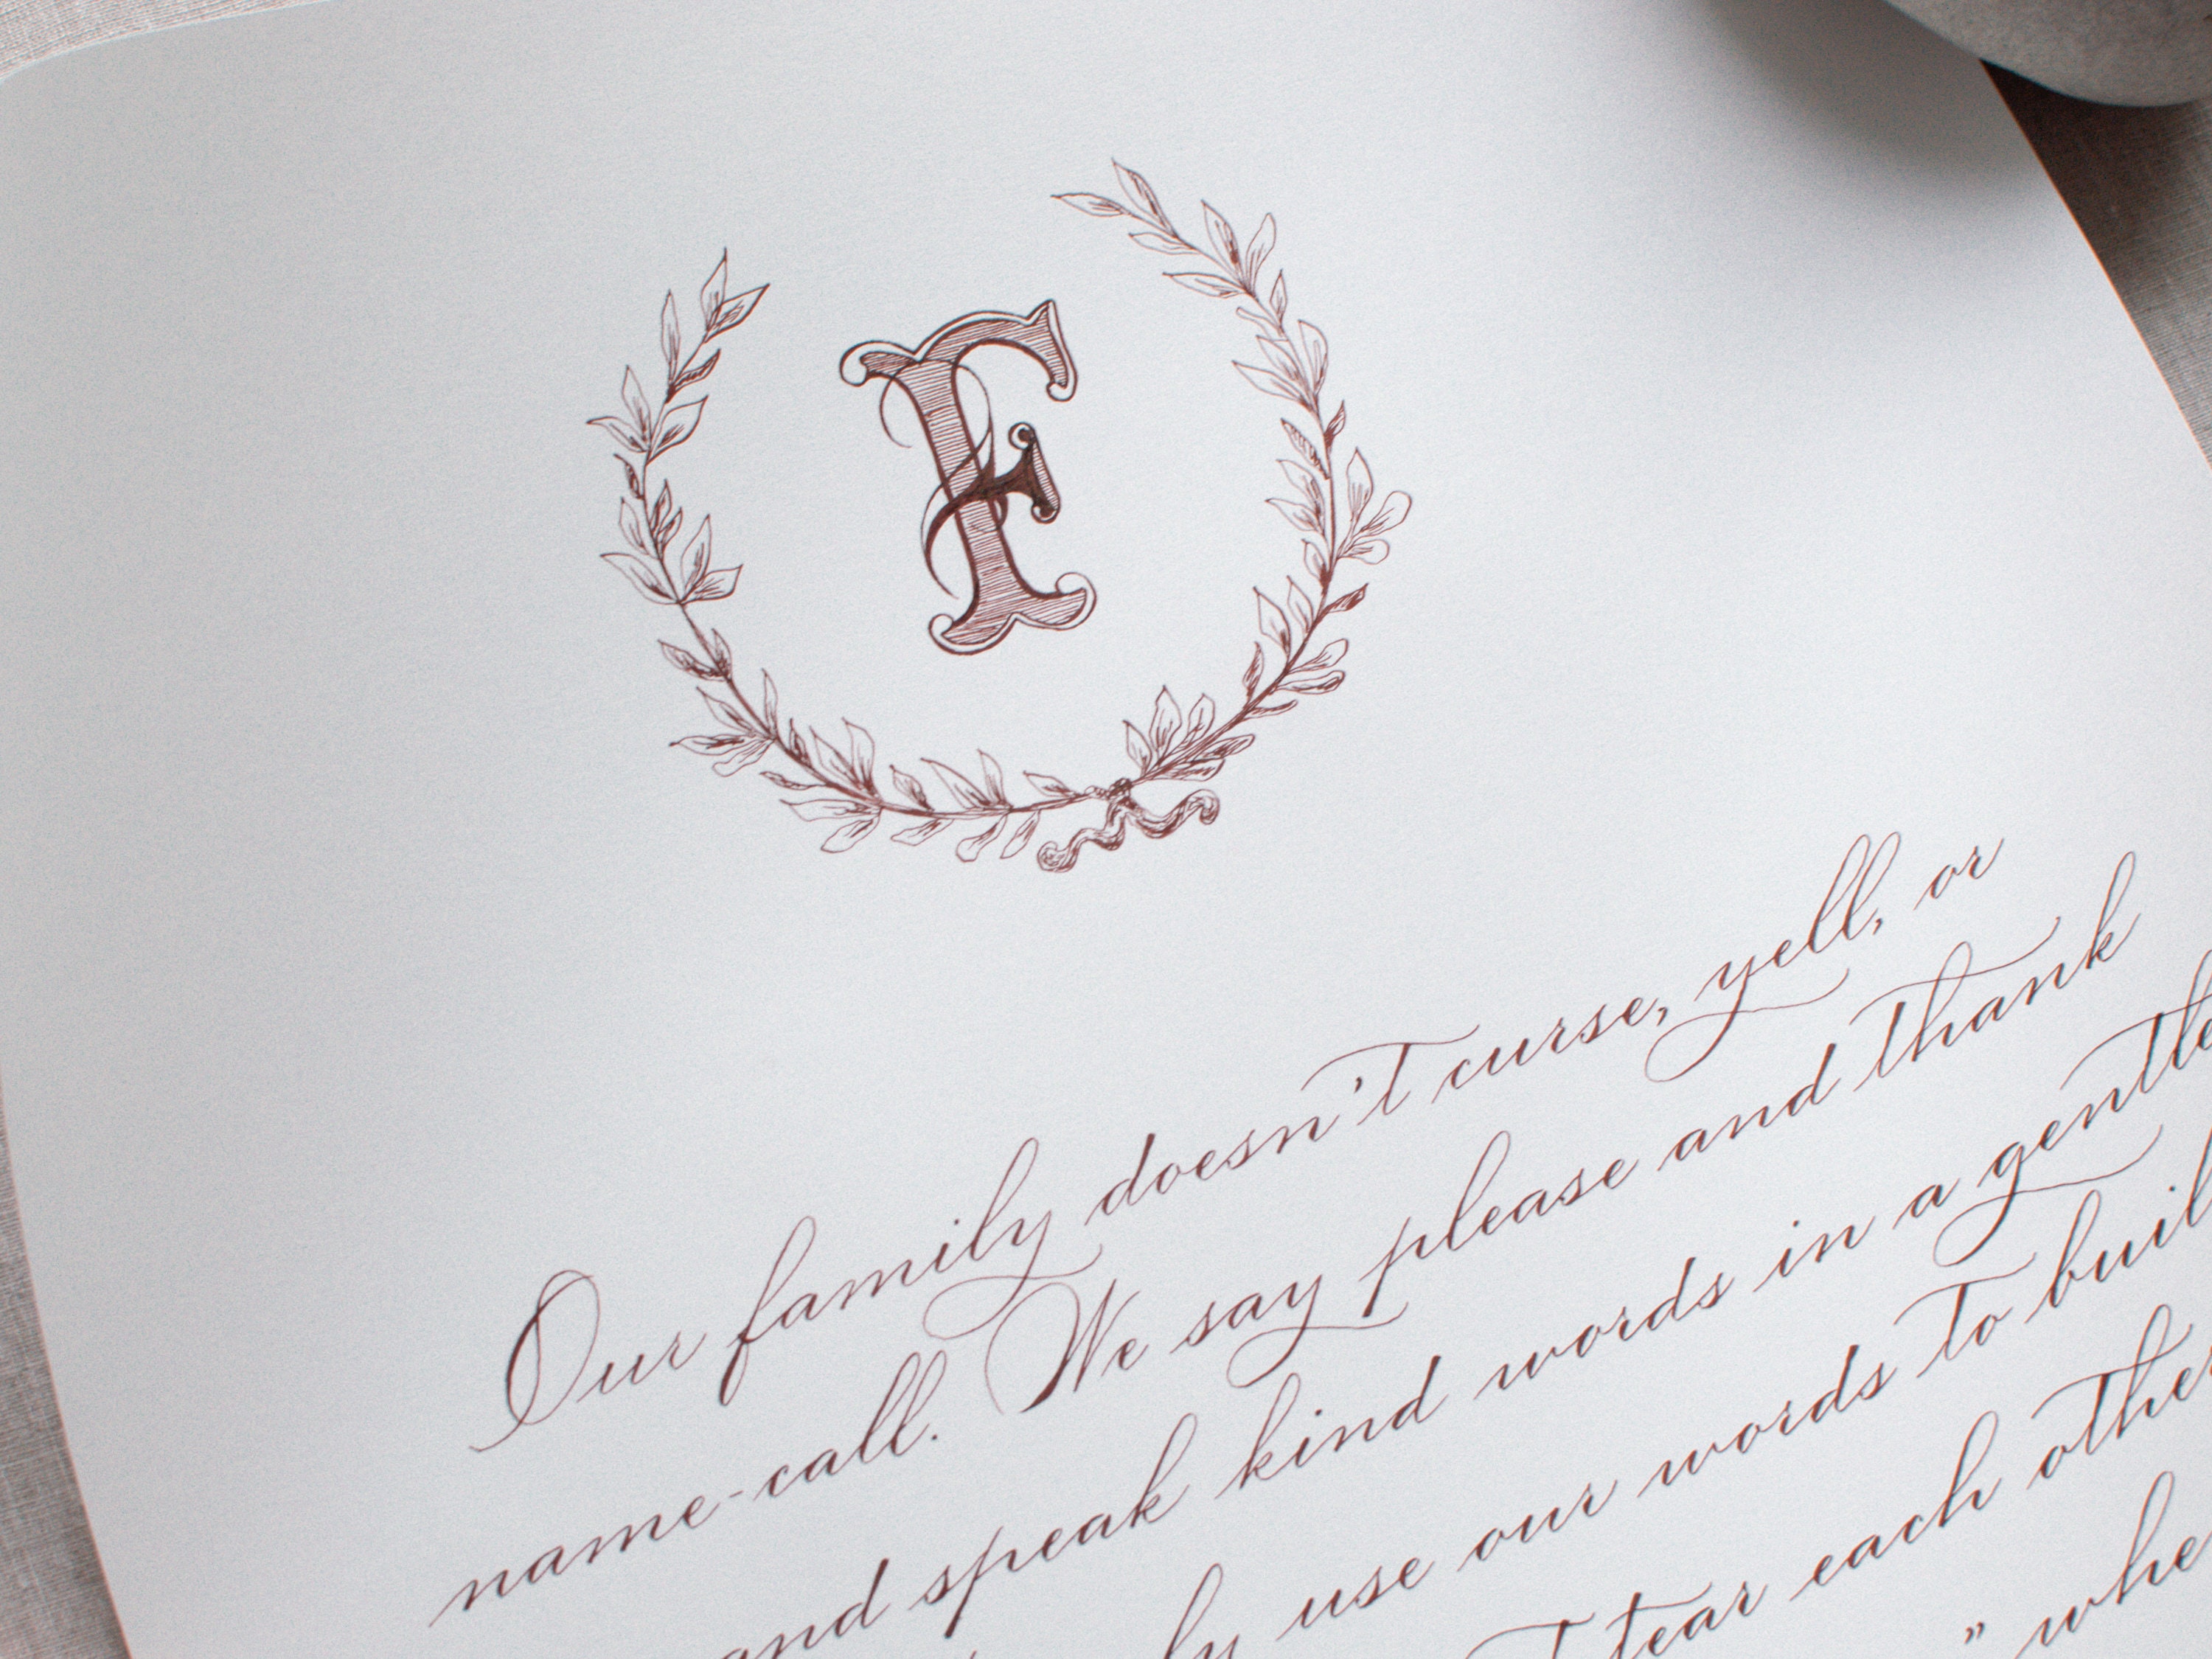 F
Our family doesn't curse, yell, or
name-call. We say please and thank
and speak kind words in a gentle
use our words to
tear each other
"